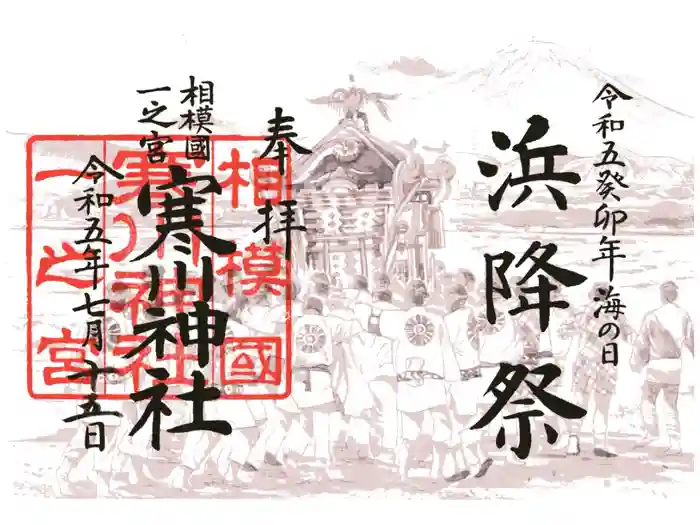 令和五癸卯年 海の日
浜降祭
奉拝
相模國
一之宮
寒川神社
令和五年七月十五日
相模國
寒川神社
一之宮